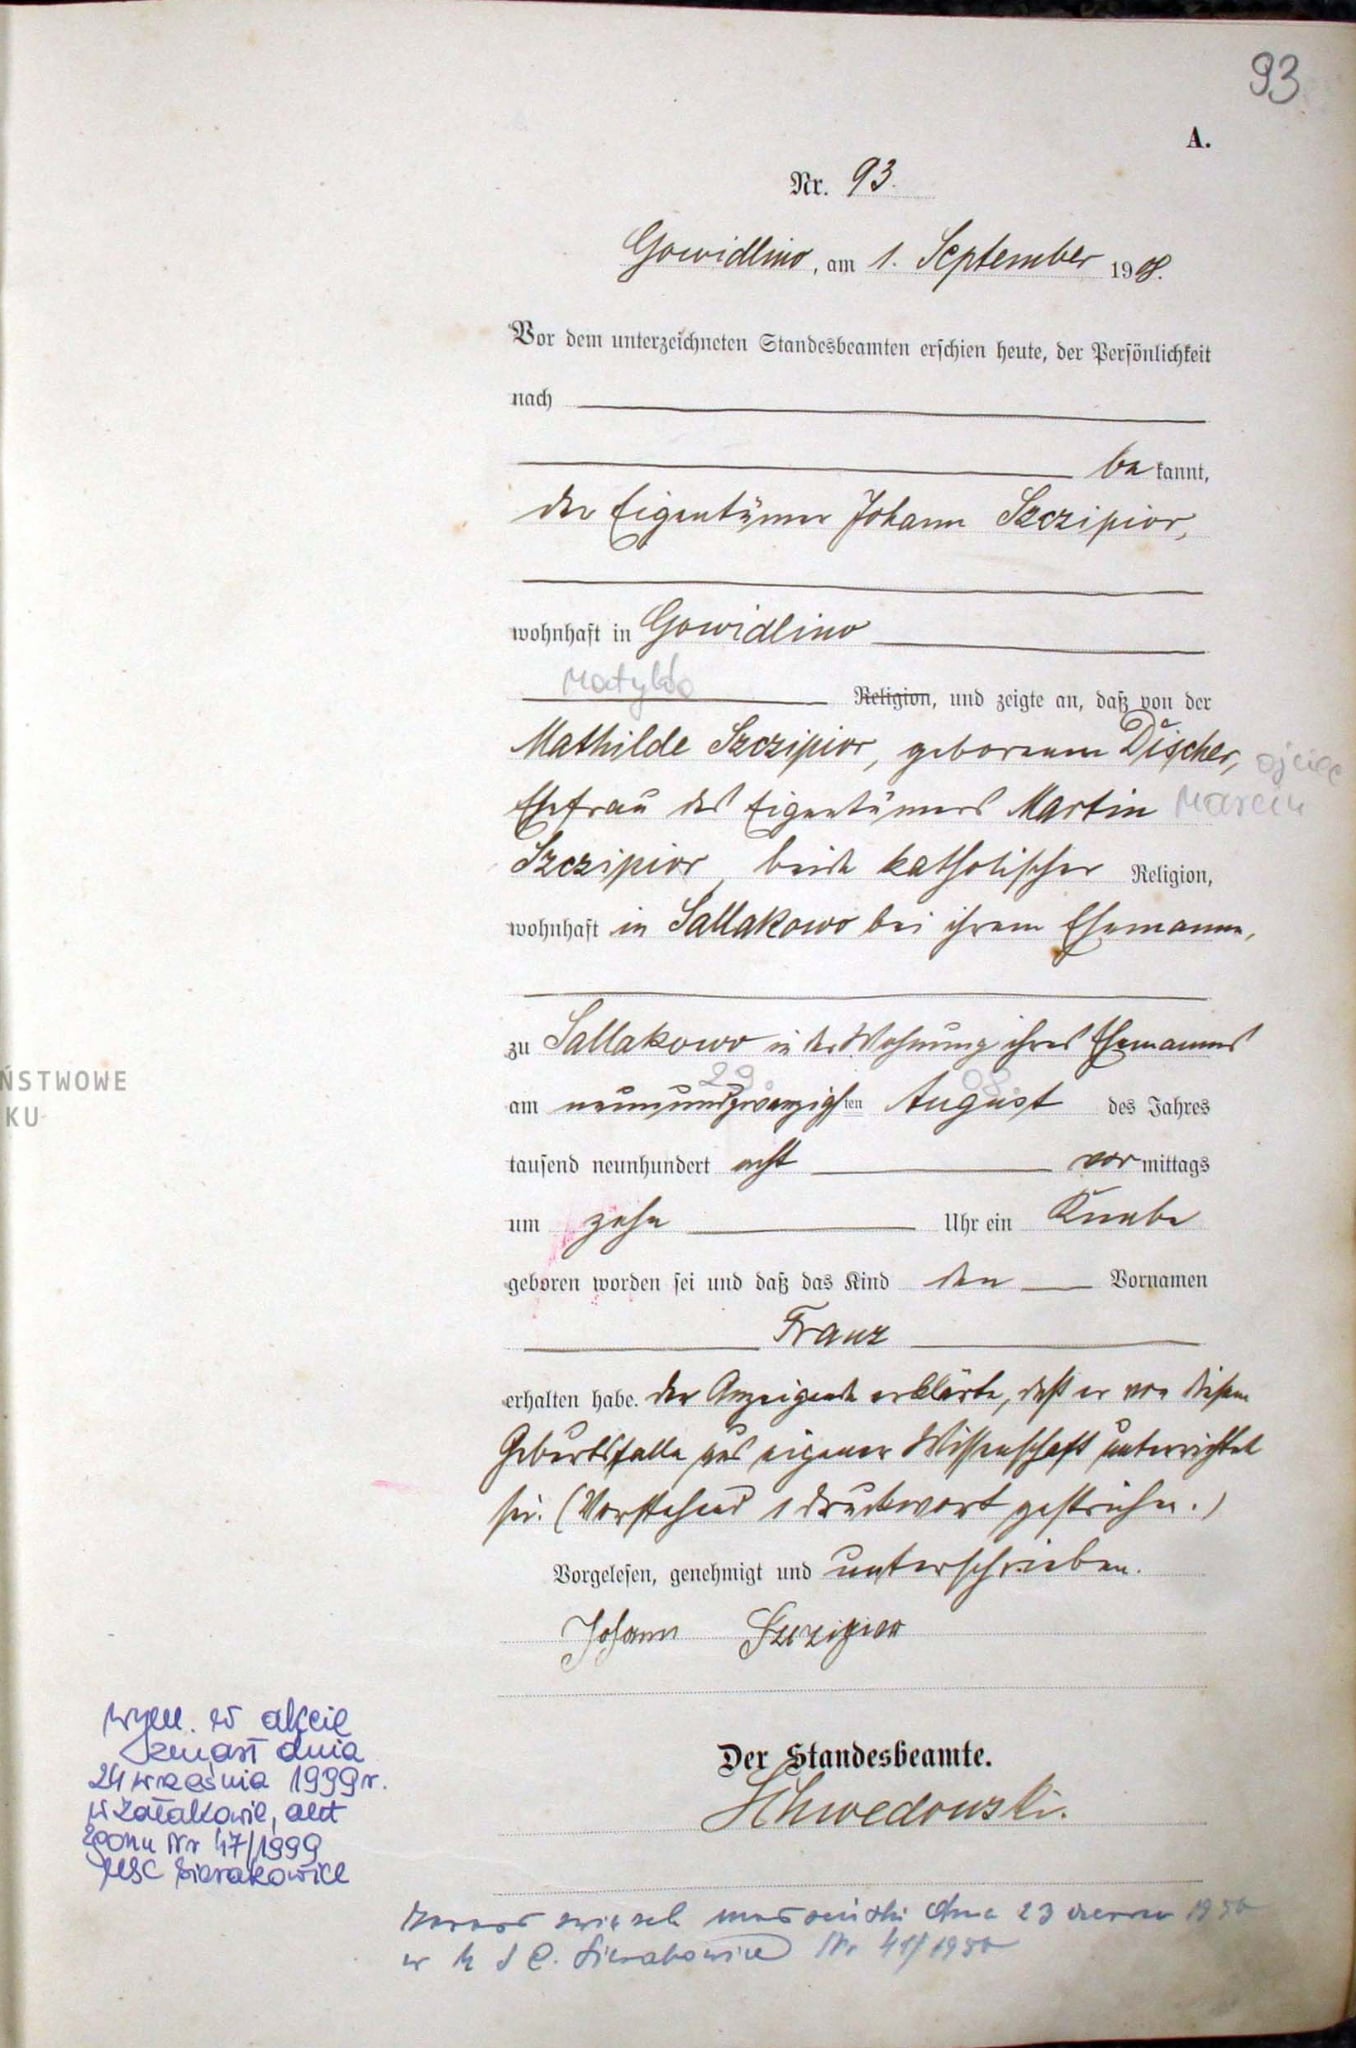 93
A.
Nr. 93.
Gowidlino, am 1. September 1908.
Vor dem unterzeichneten Standesbeamten erschien heute, der Persönlichkeit
nach
be kannt,
der Eigentümer Johann Szczipior,
wohnhaft in Gowidlino
Matylda
Religion, und zeigte an, daß von der
Mathilde Szczipior, geborenen Discher, ojciec
Ehefrau des Eigentümers Martin Marcin
Szczipior, beide katholischer Religion,
wohnhaft in Sallakowo bei ihrem Ehemanne,
zu Sallakowo in der Wohnung ihres Ehemannes
29. 08.
am neunundzwanzigsten August des Jahres
ŃSTWOWE
KU
tausend neunhundert acht vor mittags
um zehn Uhr ein Knabe
geboren worden sei und daß das Kind den Vornamen
Franz
erhalten habe. Der Anzeigende erklärte, daß er von diesem
Geburtsfalle aus eigener Wissenschaft unterrichtet
sei. (Vorstehend 1 Druckwort gestrichen.)
Vorgelesen, genehmigt und unterschrieben.
Johann Szczipior
Der Standesbeamte.
Schwedowski.
w akcie
zmarł dnia
24 września 1999 r.
w Załakowie, akt
zgonu Nr 47/1999
USC Sierakowice
Zawarł związek małżeński dnia 23 1950
w U S C. Sierakowice Nr 41/1950